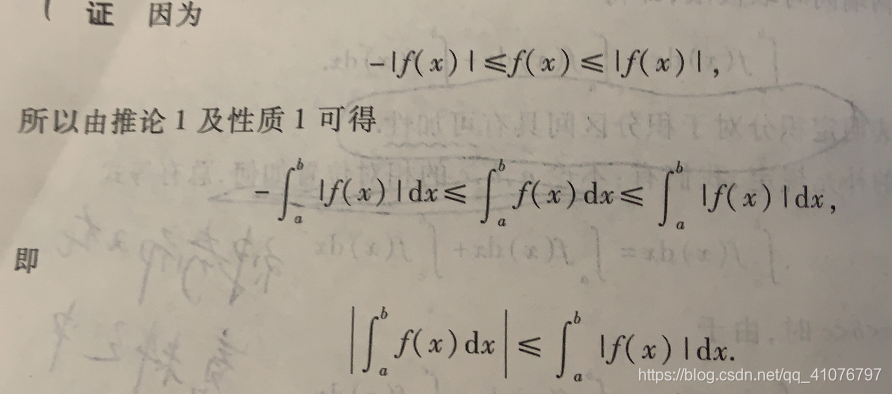 证 因为
-|f(x)|≤f(x)≤|f(x)|,
所以由推论1及性质1可得
-∫_a^b |f(x)|dx≤∫_a^b f(x)dx≤∫_a^b |f(x)|dx,
即
|∫_a^b f(x)dx|≤∫_a^b |f(x)|dx.
https://blog.csdn.net/qq_41076797